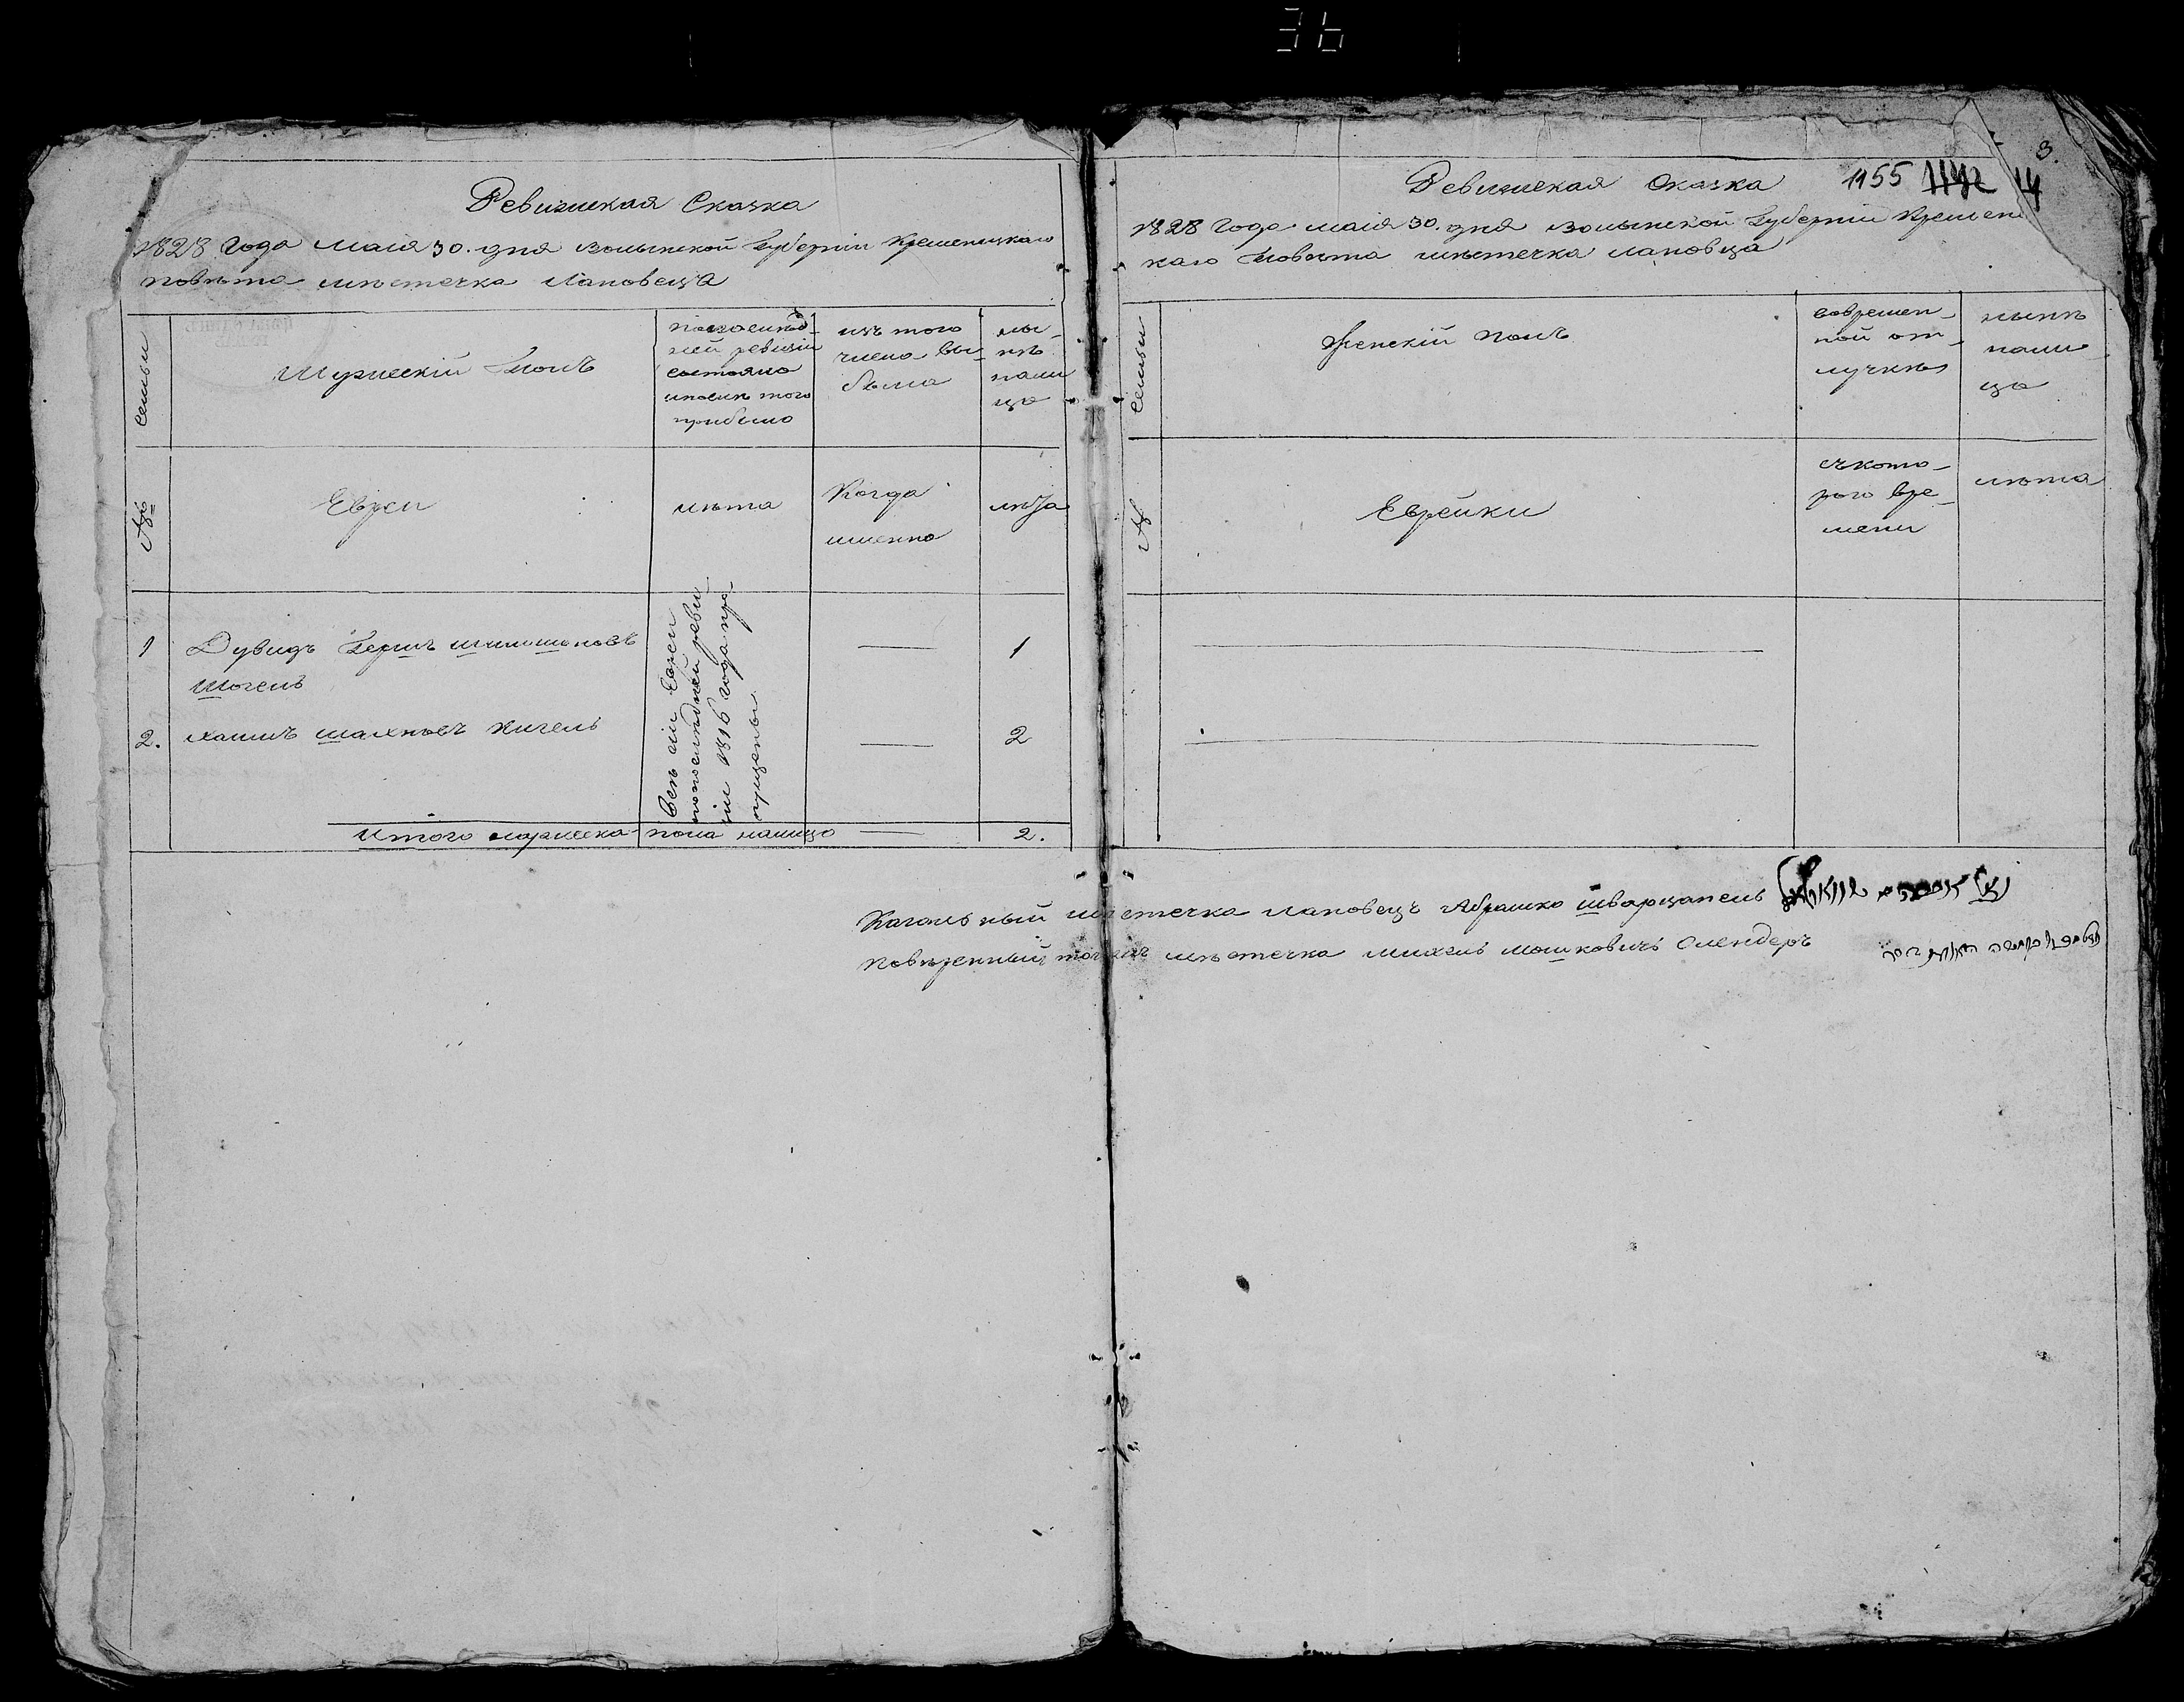 36
Ревизская Сказка
1828 года маія 30. дня волынской Губерніи Кременецкаго
повѣта мѣстечка Лановецъ
семьи
Мужескій Полъ
попослѣд-
ней ревизіи
состояло
ипослѣ того
прибыло
изъ того
числа вы-
было
ны-
нѣ
нали
цо
№
Евреи
лѣта
Когда
именно
лѣта
1
Дувидъ Гершъ
1
2.
Хаимъ Шахновъ Кигель
2
Всѣ сіи Евреи
попослѣдней реви
зіи 1816 года про
пущены
Итого мужеска пола налицо 2.
3.
Ревизская Сказка 1155 14
1828 года маія 30. дня волынской Губерніи Кременец
каго Повѣта мѣстечка лановца
семьи
Женскій полъ
вовремен-
ной от-
лучкѣ
нынѣ
нали-
цо
№
Еврейки
съкото-
раго вре-
мени
лѣта
Кагальный мѣстечка лановецъ Абрашко шварцапель
Повѣренный тогожъ мѣстечка михель мошковичъ Слендеръ